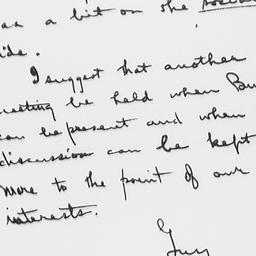 as a bit on the social
side.
I suggest that another
meeting be held when Bu
can be present and when
discussion can be kept
more to the point of our
interests.
Guy